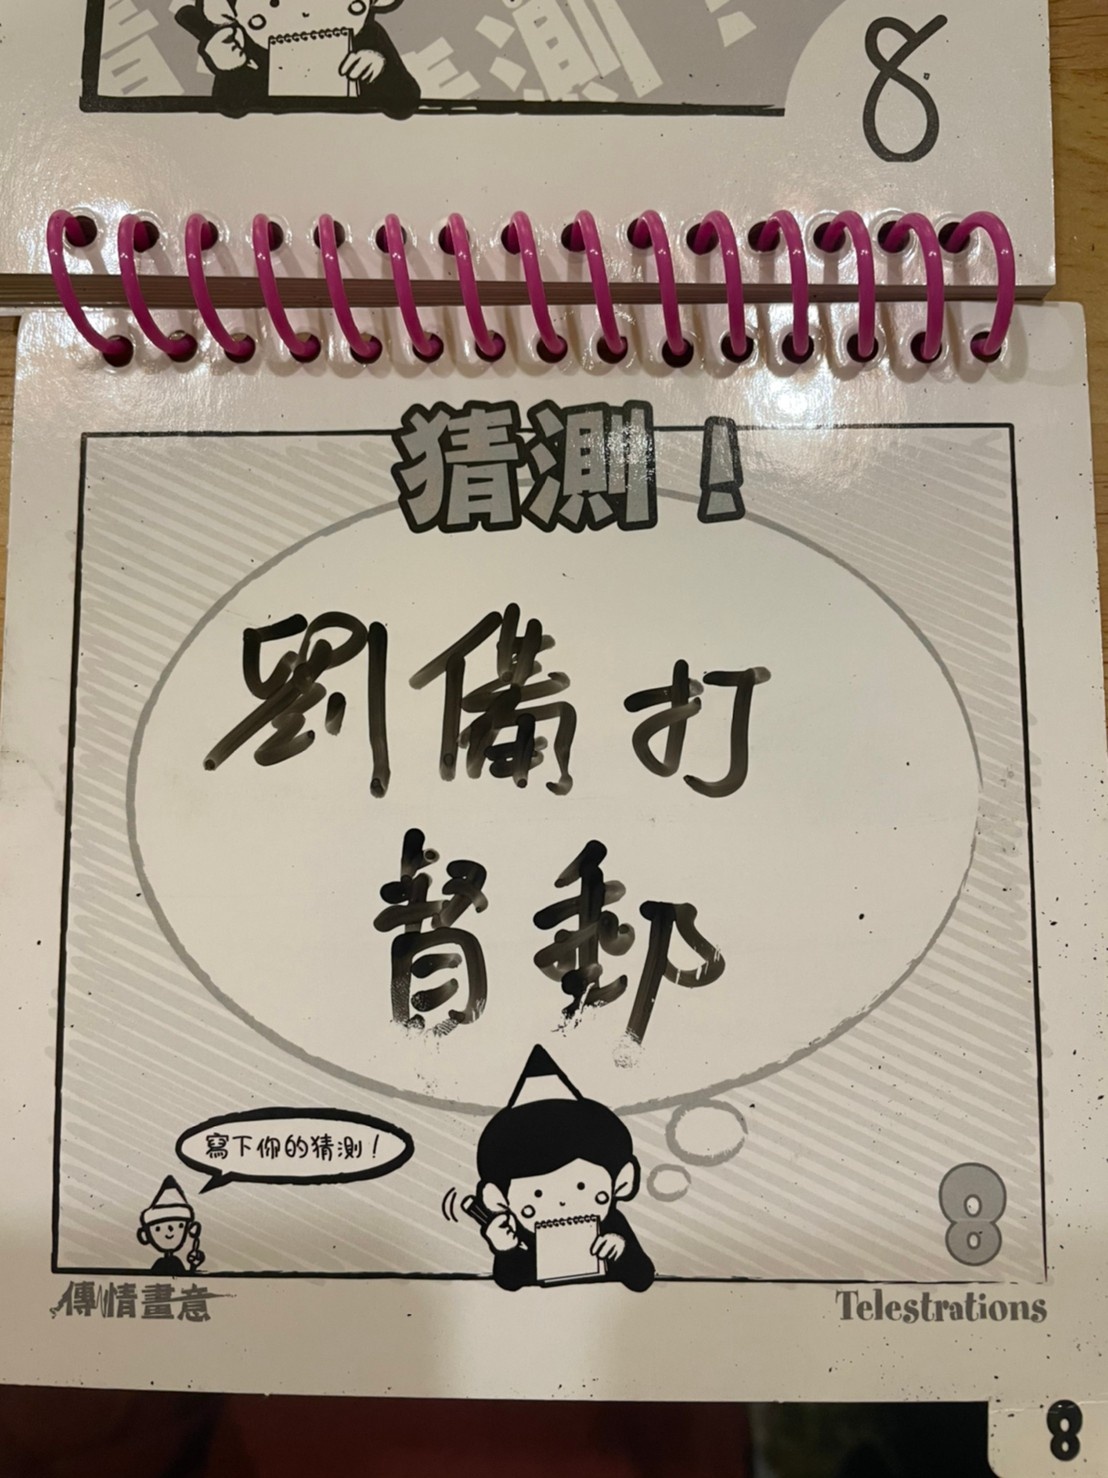 8
猜測！
劉備打
督郵
寫下你的猜測！
8
傳情畫意
Telestrations
8